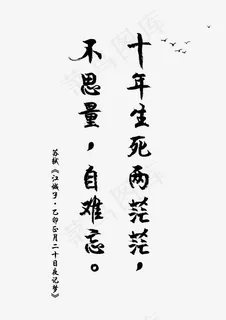 十年生死两茫茫，
不思量，自难忘。
苏轼《江城子·乙卯正月二十日夜记梦》